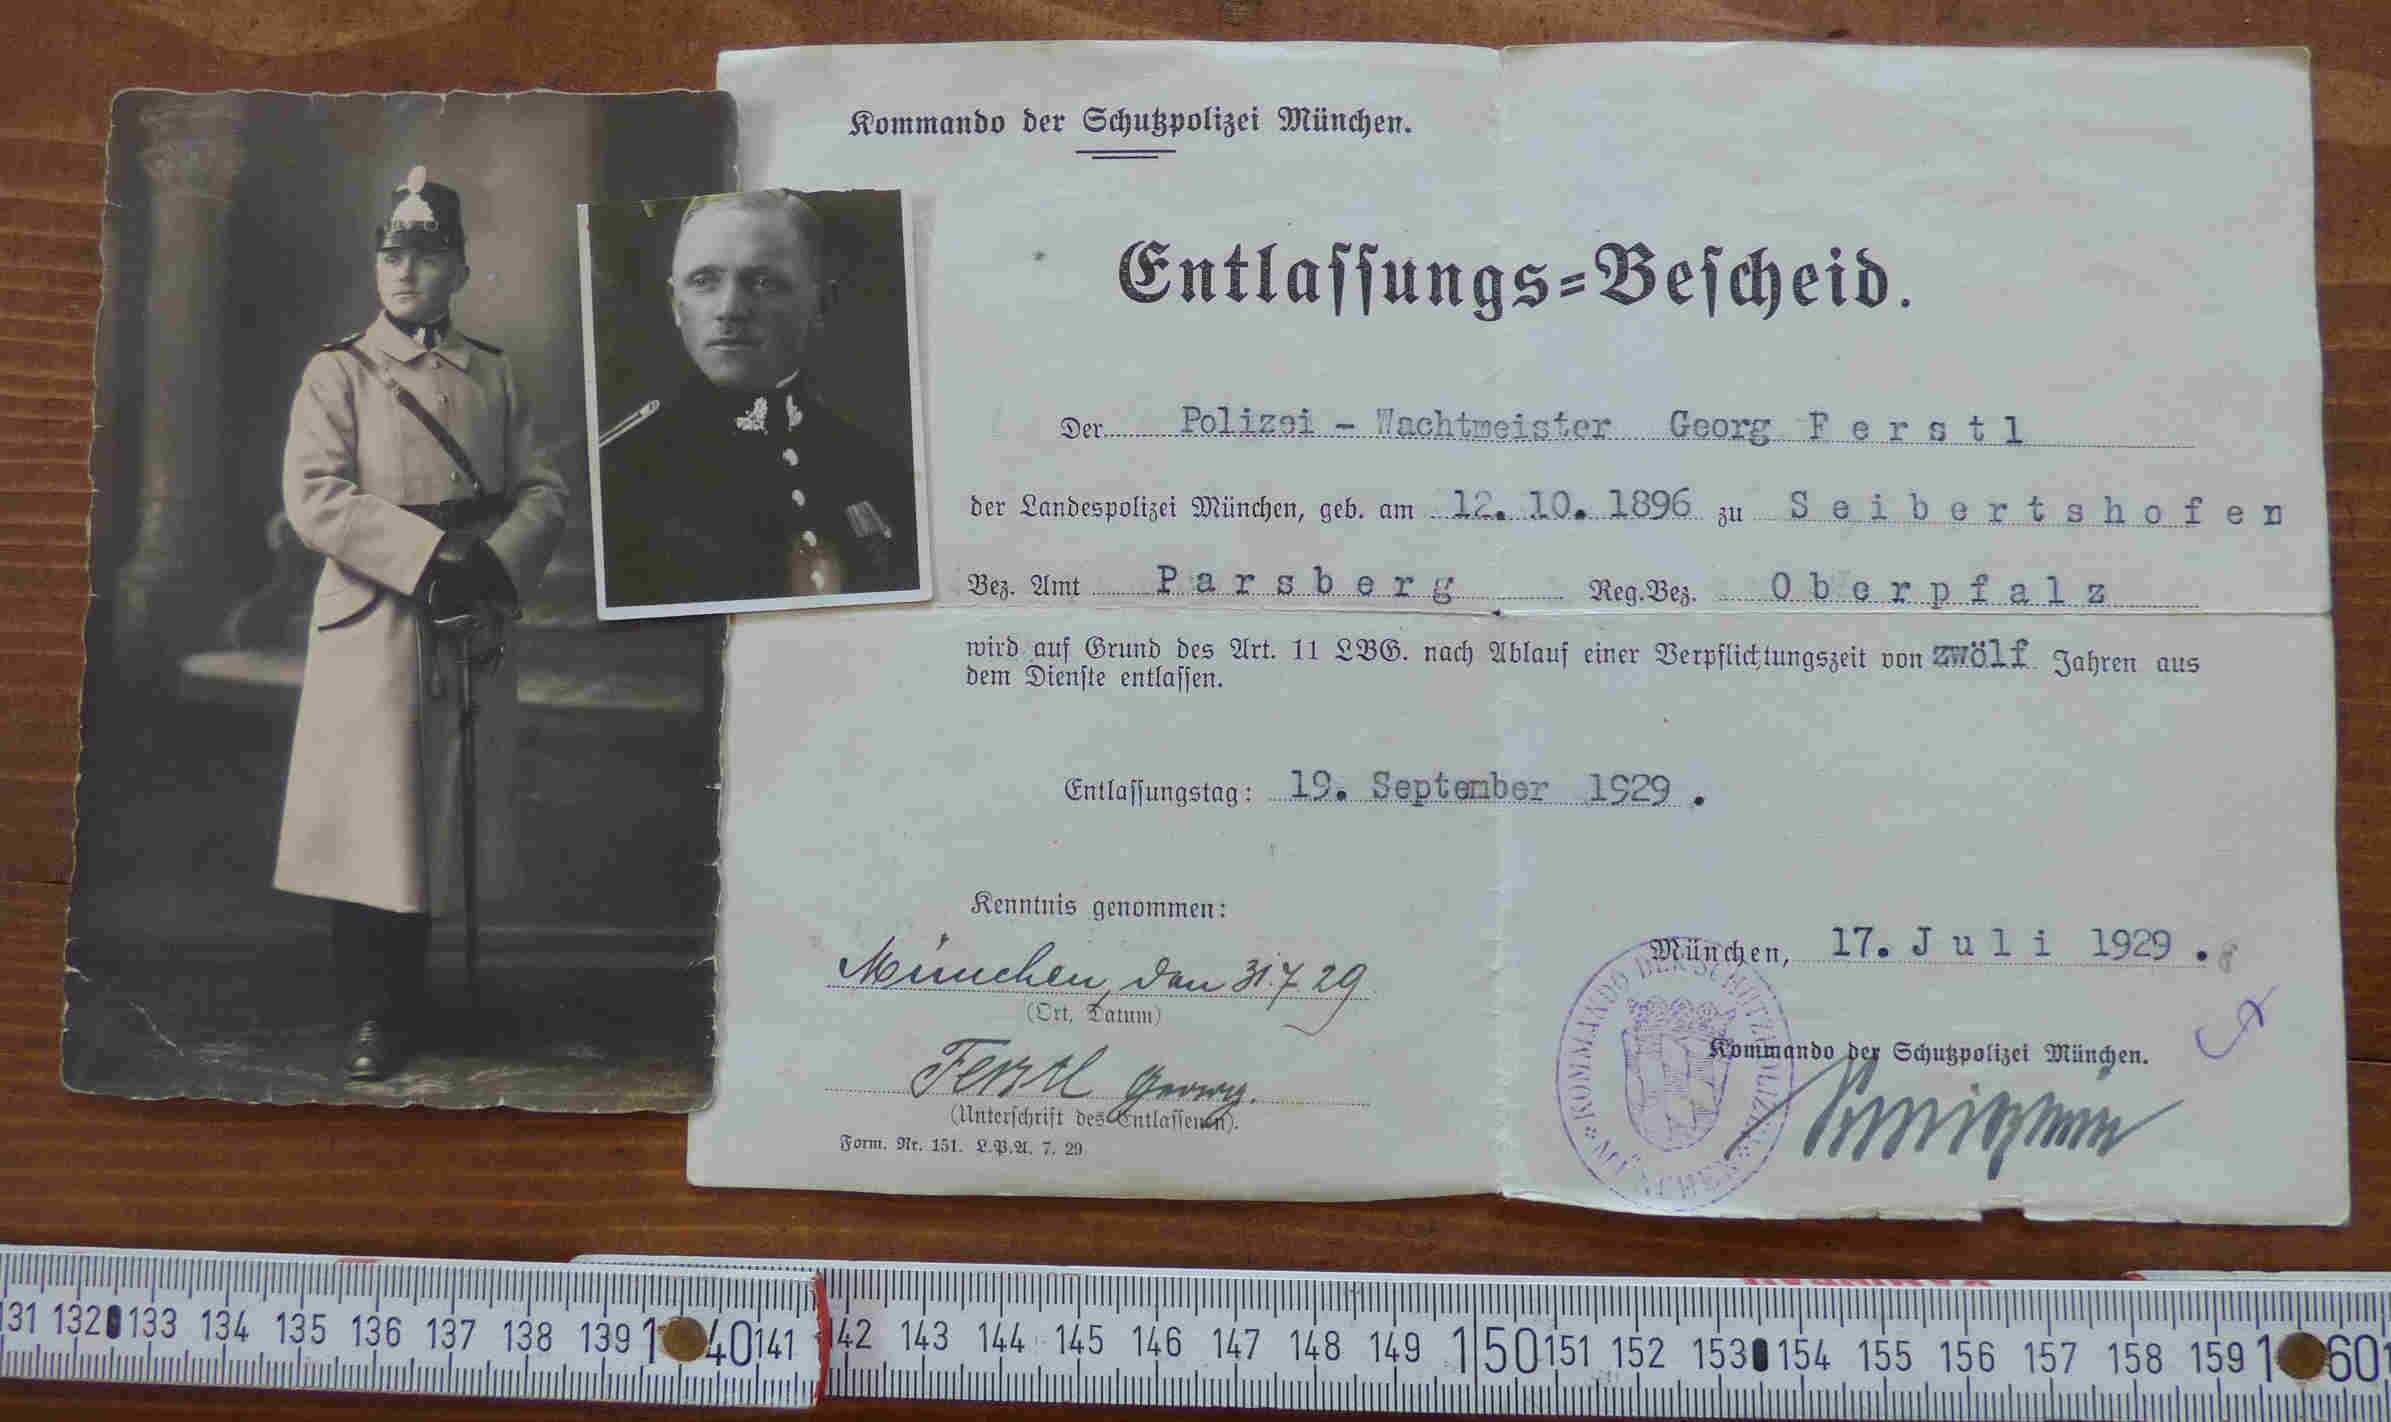 Kommando der Schutzpolizei München.
Entlassungs=Bescheid.
Der Polizei - Wachtmeister Georg Ferstl
der Landespolizei München, geb. am 12. 10. 1896 zu Seibertshofen
Bez. Amt Parsberg Reg.Bez. Oberpfalz
wird auf Grund des Art. 11 LBG. nach Ablauf einer Verpflichtungszeit von zwölf Jahren aus
dem Dienste entlassen.
Entlassungstag: 19. September 1929 .
Kenntnis genommen:
München, den 31.7 29
(Ort, Datum)
Ferstl Georg.
(Unterschrift des Entlassenen).
Form. Nr. 151. L.P.A. 7. 29
München, 17. Juli 1929 .
KOMMANDO DER SCHUTZPOLIZEI MÜNCHEN
Kommando der Schutzpolizei München.
131 132 133 134 135 136 137 138 139 140 141 142 143 144 145 146 147 148 149 150 151 152 153 154 155 156 157 158 159 160